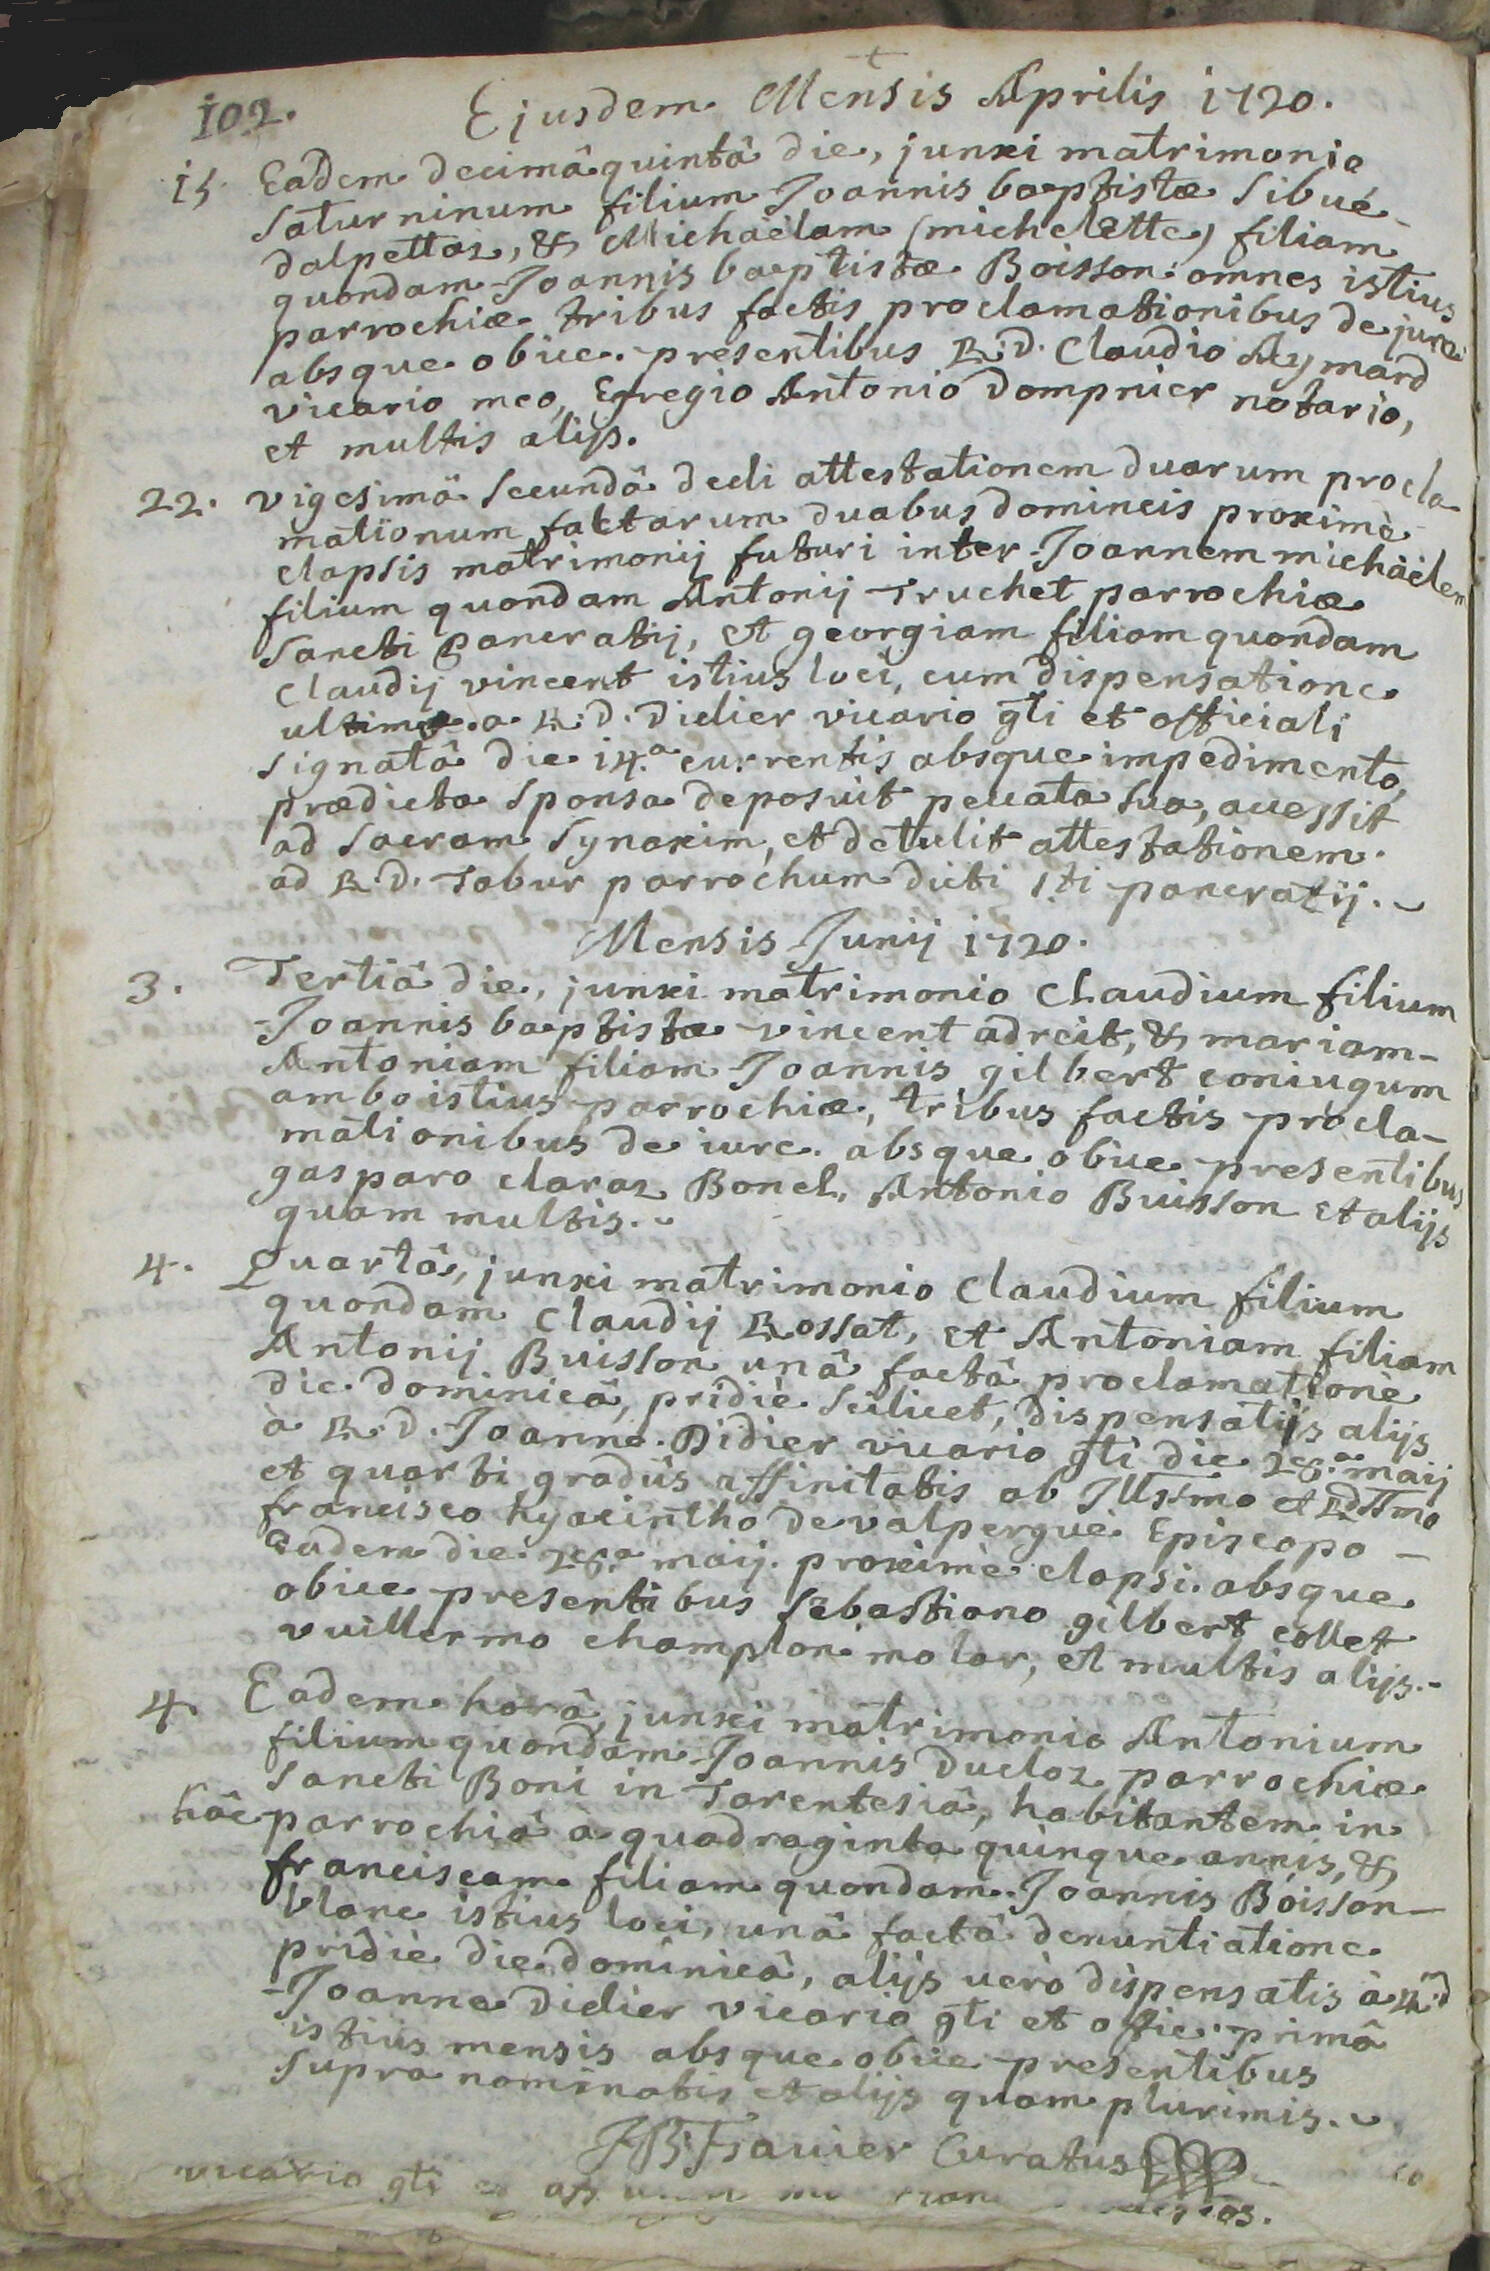 102. Ejusdem Mensis Aprilis 1720.
15 Eadem decimâ quintâ die, junxi matrimonio
Saturninum filium Joannis baptistæ Sibué-
dalpettaz, & Michaëlam (michelette) filiam
quondam Joannis baptistæ Boisson: omnes istius
parrochiæ tribus factis proclamationibus de jure
absque obice. presentibus R:D. Claudio Aymard
vicario meo, Egregio Antonio Dompnier notario,
et multis alijs.
22. vigesimâ Secundâ dedi attestationem duarum procla-
mationum factarum duabus domincis proximè
elapsis matrimonij futuri inter Joannem michäelem
filium quondam Antonij Truchet parrochiæ
Sancti Pancratij, et georgiam filiam quondam
Claudij vincent istius loci, cum dispensatione
ultimæ a R:D. Didier vicario gti et officiali
signatâ die 14.a currentis absque impedimento,
prædicta Sponsa deposuit peccata sua, accessit
ad Sacram Synaxim, et detulit attestationem
ad R.D. Tabur parrochum dicti Sti pancratij.
Mensis Junij 1720.
3. Tertiâ die, junxi matrimonio Claudium filium
Joannis baptistæ vincent adreit, & mariam-
Antoniam filiam Joannis gilbert coniugum
ambo istius parrochiæ, tribus factis procla-
mationibus de iure. absque obice presentibus
gasparo claraz Bonel, Antonio Buisson et alijs
quam multis.
4. Quartâ, junxi matrimonio Claudium filium
quondam Claudij Rossat, et Antoniam filiam
Antonij Buisson unâ factâ proclamatione
die dominicâ, pridiè scilicet, dispensatijs alijs
à R.D. Joanne Didier vicario gti die 28.a maij
et quarti gradûs affinitatis ab Illssmo et RdIImo
francisco hyacintho de valperguè Episcopo -
Eadem die 28.a maij. proximè elapsi. absque
obice presentibus Sebastiano gilbert collet
vuillermo champlon molar, et multis alijs.-
4. Eadem horâ, junxi matrimonio Antonium
filium quondam Joannis Ducloz parrochiæ
Sancti Boni in Tarentesiâ, habitantem in
hâc parrochiâ à quadraginta quinque annis, &
franciscam filiam quondam Joannis Boisson-
blanc istius loci, unâ factâ denuntiatione
pridiè die dominicâ, alijs verò dispensatis à R:d
Joanne Didier vicario gti et offic: primâ
istius mensis absque obice presentibus
supra nominatis et alijs quam plurimis.
Curatus
vicario gti